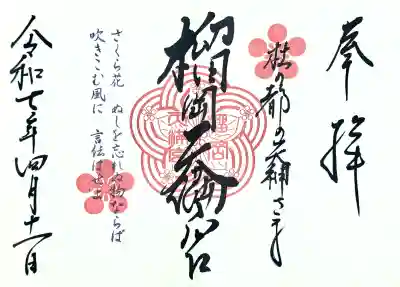 奉拝
杜の都の天神さま
榴岡天満宮
さくら花　ぬしを忘れぬ物ならば
吹きこむ風に　言伝はせよ
令和七年四月十一日